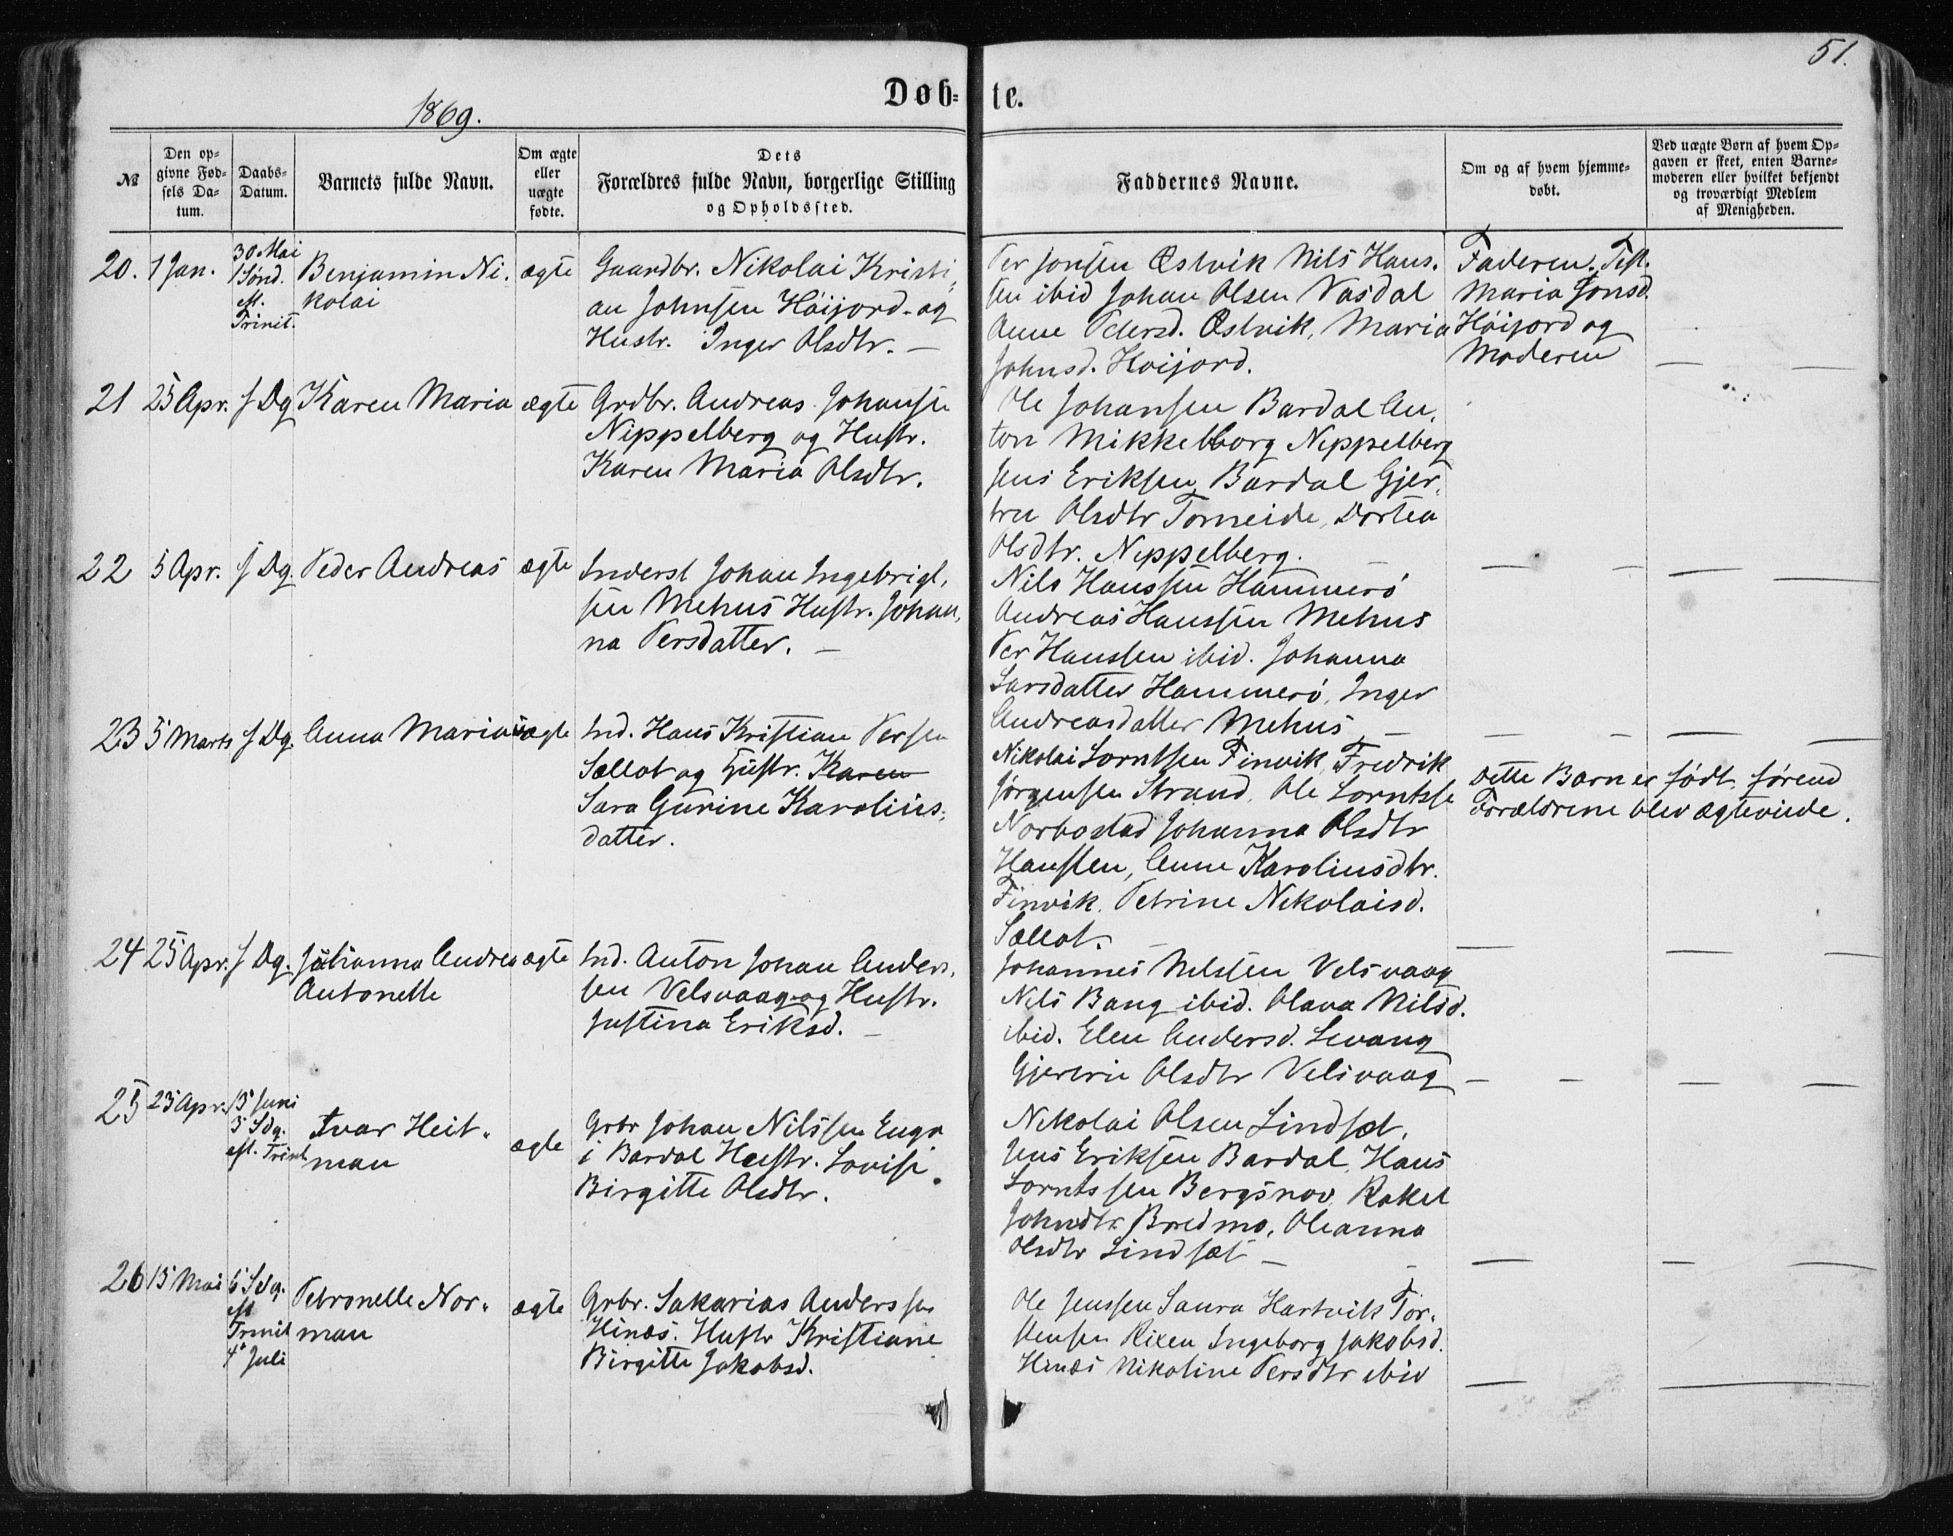 51.
Døb-
te.
1869.
№
Den op-
givne Fød-
sels Da-
tum.
Daabs-
Datum.
Barnets fulde Navn.
Om ægte
eller
uægte
fødte.
Dets
Forældres fulde Navn, borgerlige Stilling
og Opholdssted.
Faddernes Navne.
Om og af hvem hjemme-
døbt.
Ved uægte Børn af hvem Op-
gaven er skeet, enten Barne-
moderen eller hvilket bekjendt
og troværdigt Medlem
af Menigheden.
20.
1 Jan.
30 Mai
1 Sønd.
eft.
Trinit.
Benjamin Ni-
kolai
ægte
Gaardbr. Nikolai Kristi-
an Johnsen Höijord og
Hustr. Inger Olsdtr. —
Per Jonsen Østvik Nils Hans-
sen ibid Johan Olsen Vasdal
Anne Pedersd. Østvik, Maria
Johnsd. Höijord.
Faderen. Test.
Maria Jonsd.
Höijord og
Moderen
21
25 Apr.
s Dg
Karen Maria
ægte
Grdbr. Andreas Johansen
Nippelberg og Hustr.
Karen Maria Olsdtr.
Ole Johansen Bardal An-
ton Mikkelborg Nippelberg
Jens Eriksen Bardal Gjer-
tru Olsdtr Forneide, Dortea
Olsdtr. Nippelberg.
22
5 Apr.
s Dg.
Peder Andreas
ægte
Inderst Johan Ingebrigt-
sen Mehus Hustr. Johan-
na Persdatter. —
Nils Hanssen Hammerö
Andreas Hanssen Mehus
Per Hanssen ibid. Johanna
Larsdatter Hammerö, Inger
Andreasdatter Mehus
23
5 Marts
s Dg.
Anna Maria
ægte
Ind. Hans Kristian Persen
Sellot og Hustr. Karen
Sara Gurine Karolius-
datter.
Nikolai Lorntsen Finvik, Fredrik
Jørgensen Strand, Ole Lorntsen
Norbostad Johanna Olsdtr
Hansten, Anne Karoliusdtr.
Finvik. Petrine Nikolaisd.
Sellot.
Dette Barn er født førend
Forældrene blev ægteviede.
24
25 Apr.
s Dg.
Julianna Andrea
Antonette
ægte
Ind. Anton Johan Anders-
sen Velsvaag og Hustr.
Justina Eriksd. —
Johannes Nilssen Velsvaag
Nils Bang ibid. Olava Nilsd.
ibid. Elen Andersd. Levang
Olsdtr Velsvaag
25
23 Apr.
15 Juni
5 Sdg.
eft. Trinit
Ivar Heit-
man
ægte
Grbr Johan Nilssen Enga
i Bardal Hustr. Lovise
Birgitte Olsdtr.
Nikolai Olsen Lindset,
Jens Eriksen Bardal, Hans
Lorntssen Bergsnov, Rakel
Johnsdtr Bredmo, Oleanna
Olsdtr Lindsæt —
26
15 Mai
6 Sdg.
eft
Trinit
4 Juli
Petronelle Nor-
man
ægte
Grbr. Sakarias Anderssen
Hinæs. Hustr Kristiane
Birgitte Jakobsd.
Ole Jenssen Saura Hartvik Tor-
stensen Ingeborg Jakobsd.
Hinæs Nikoline Persdtr ibid